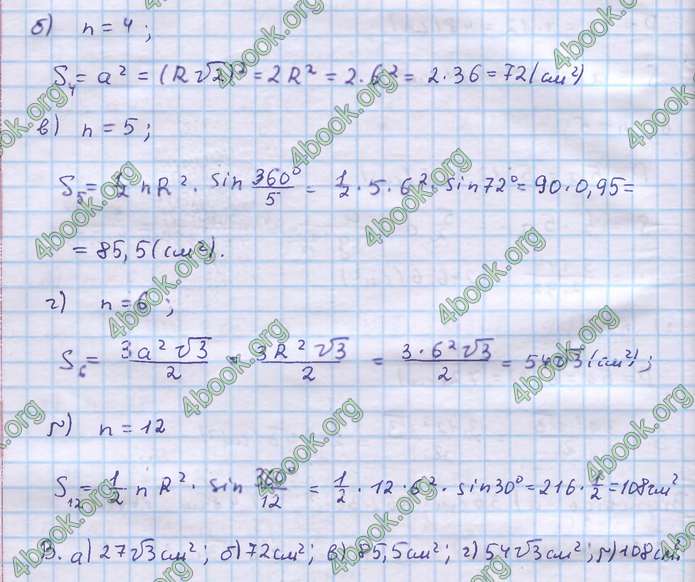 б) n = 4 ;
S₄ = a² = (R√2)² = 2R² = 2·6² = 2·36 = 72 (см²)
в) n = 5 ;
S₅ = 1/2 nR² · sin 360°/5 = 1/2 · 5 · 6² · sin 72° = 90 · 0,95 =
= 85,5 (см²).
г) n = 6 ;
S₆ = 3a²√3/2 = 3R²√3/2 = 3·6²√3/2 = 54√3 (см²) ;
ґ) n = 12
S₁₂ = 1/2 nR² · sin 360°/12 = 1/2 · 12 · 6² · sin 30° = 216 · 1/2 = 108 см²
В. а) 27√3 см² ; б) 72 см² ; в) 85,5 см² ; г) 54√3 см² ; ґ) 108 см²
4book.org